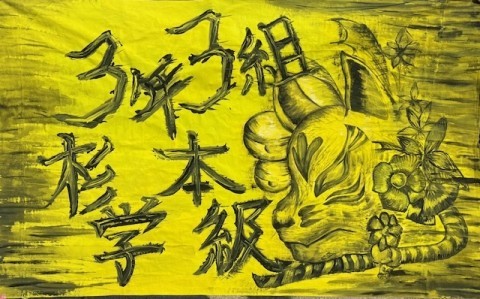 3年3組
杉本
学級